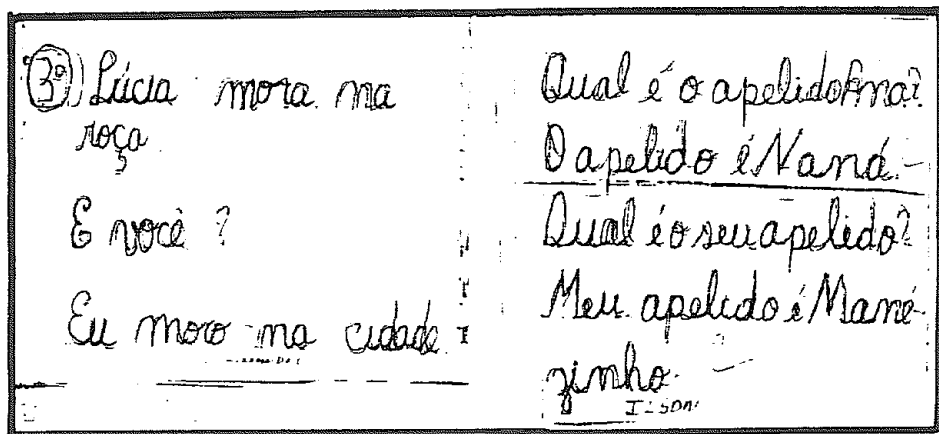 3º) Lúcia mora na
roça
E você ?
Eu moro na cidade
Qual é o apelido Ana?
O apelido é Naná.
Qual é o seu apelido?
Meu apelido é Mané-
zinho.